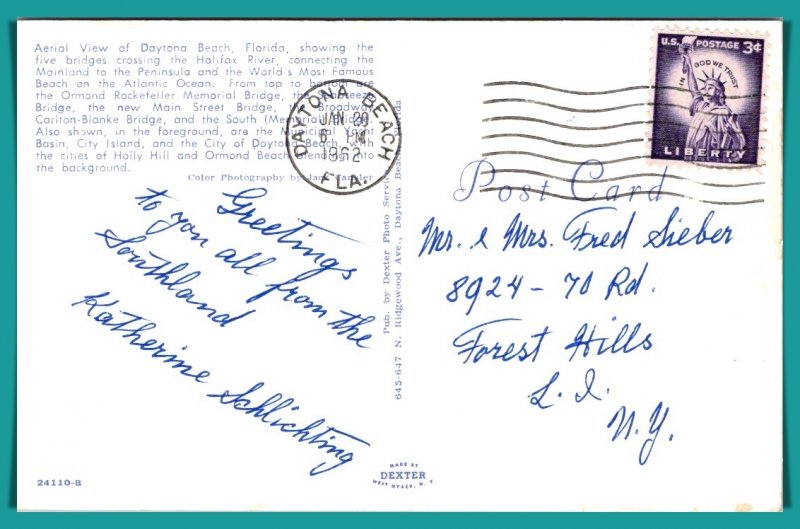 Aerial View of Daytona Beach, Florida, showing the
five bridges crossing the Halifax River, connecting the
Mainland to the Peninsula and the World's Most Famous
Beach on the Atlantic Ocean. From top to bottom are
the Ormond Rockefeller Memorial Bridge, the Seabreeze
Bridge, the new Main Street Bridge, the Broadway
Carlton-Blanke Bridge, and the South (Memorial) Bridge.
Also shown, in the foreground, are the Municipal Yacht
Basin, City Island, and the City of Daytona Beach, with
the cities of Holly Hill and Ormond Beach extending into
the background.
Color Photography by Jack
Greetings
to you all from the
Southland
Katherine Schlichting
24110-B
Pub. by Dexter Photo Service
645-647 N. Ridgewood Ave., Daytona Beach, Florida
MADE BY
DEXTER
WEST NYACK, N. Y.
DAYTONA BEACH
JAN 20
PM
1962
FLA.
U.S. POSTAGE 3¢
IN GOD WE TRUST
LIBERTY
Post Card
Mr. & Mrs. Fred Sieber
8924 - 70 Rd.
Forest Hills
L. I.
N.Y.